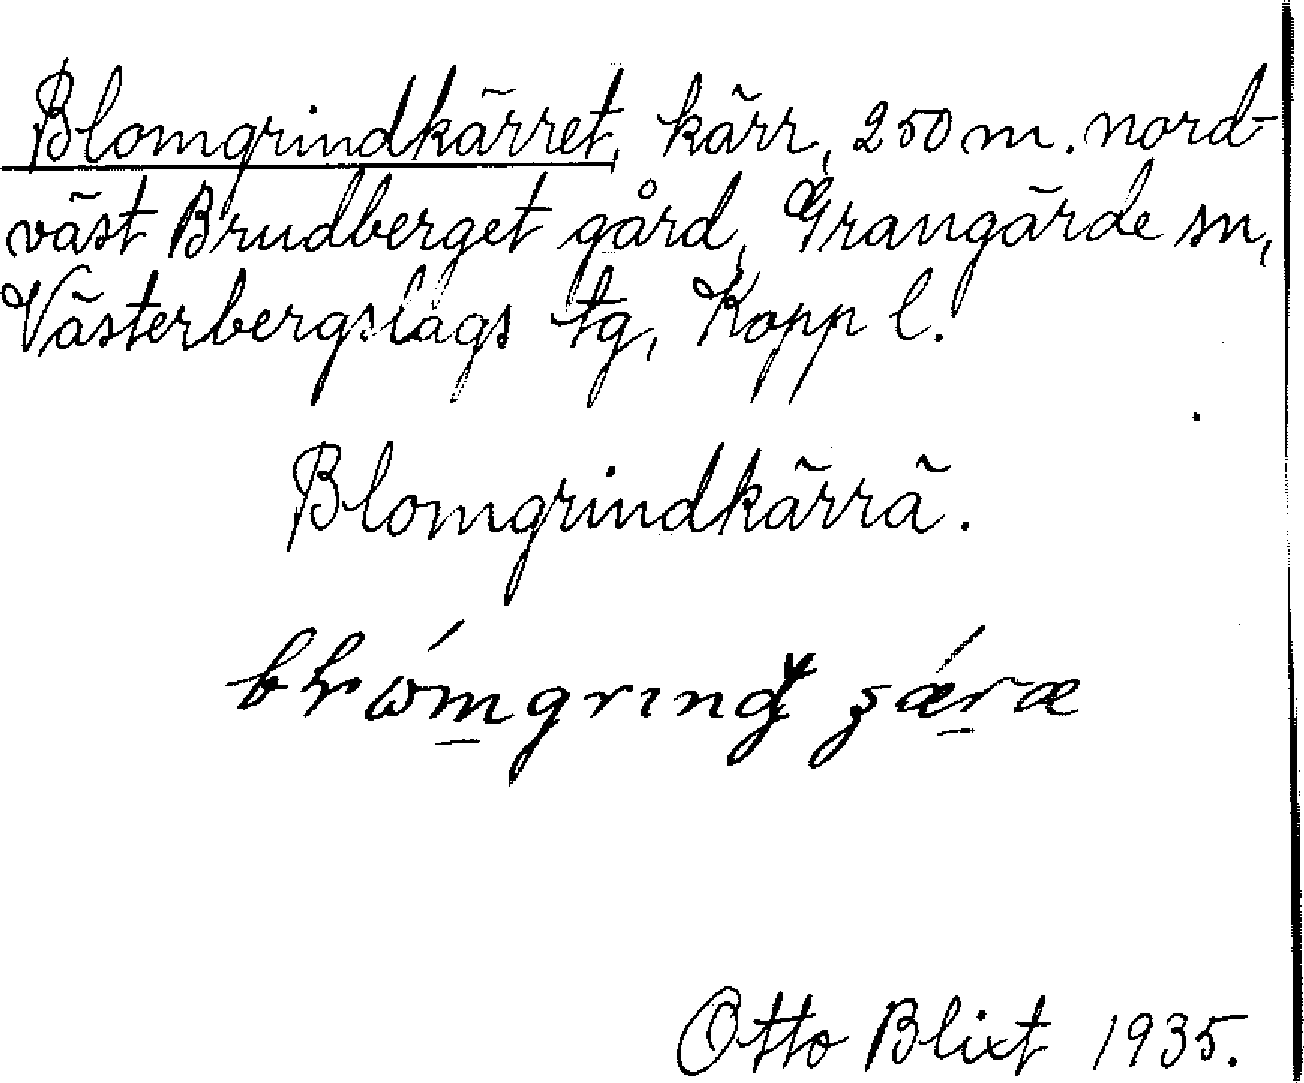 Blomgrindkärret, kärr, 250 m. nord-
väst Brudberget gård, Grangärde sn,
Västerbergslags tg, Kopp l.
Blomgrindkärrä.
Otto Blixt 1935.